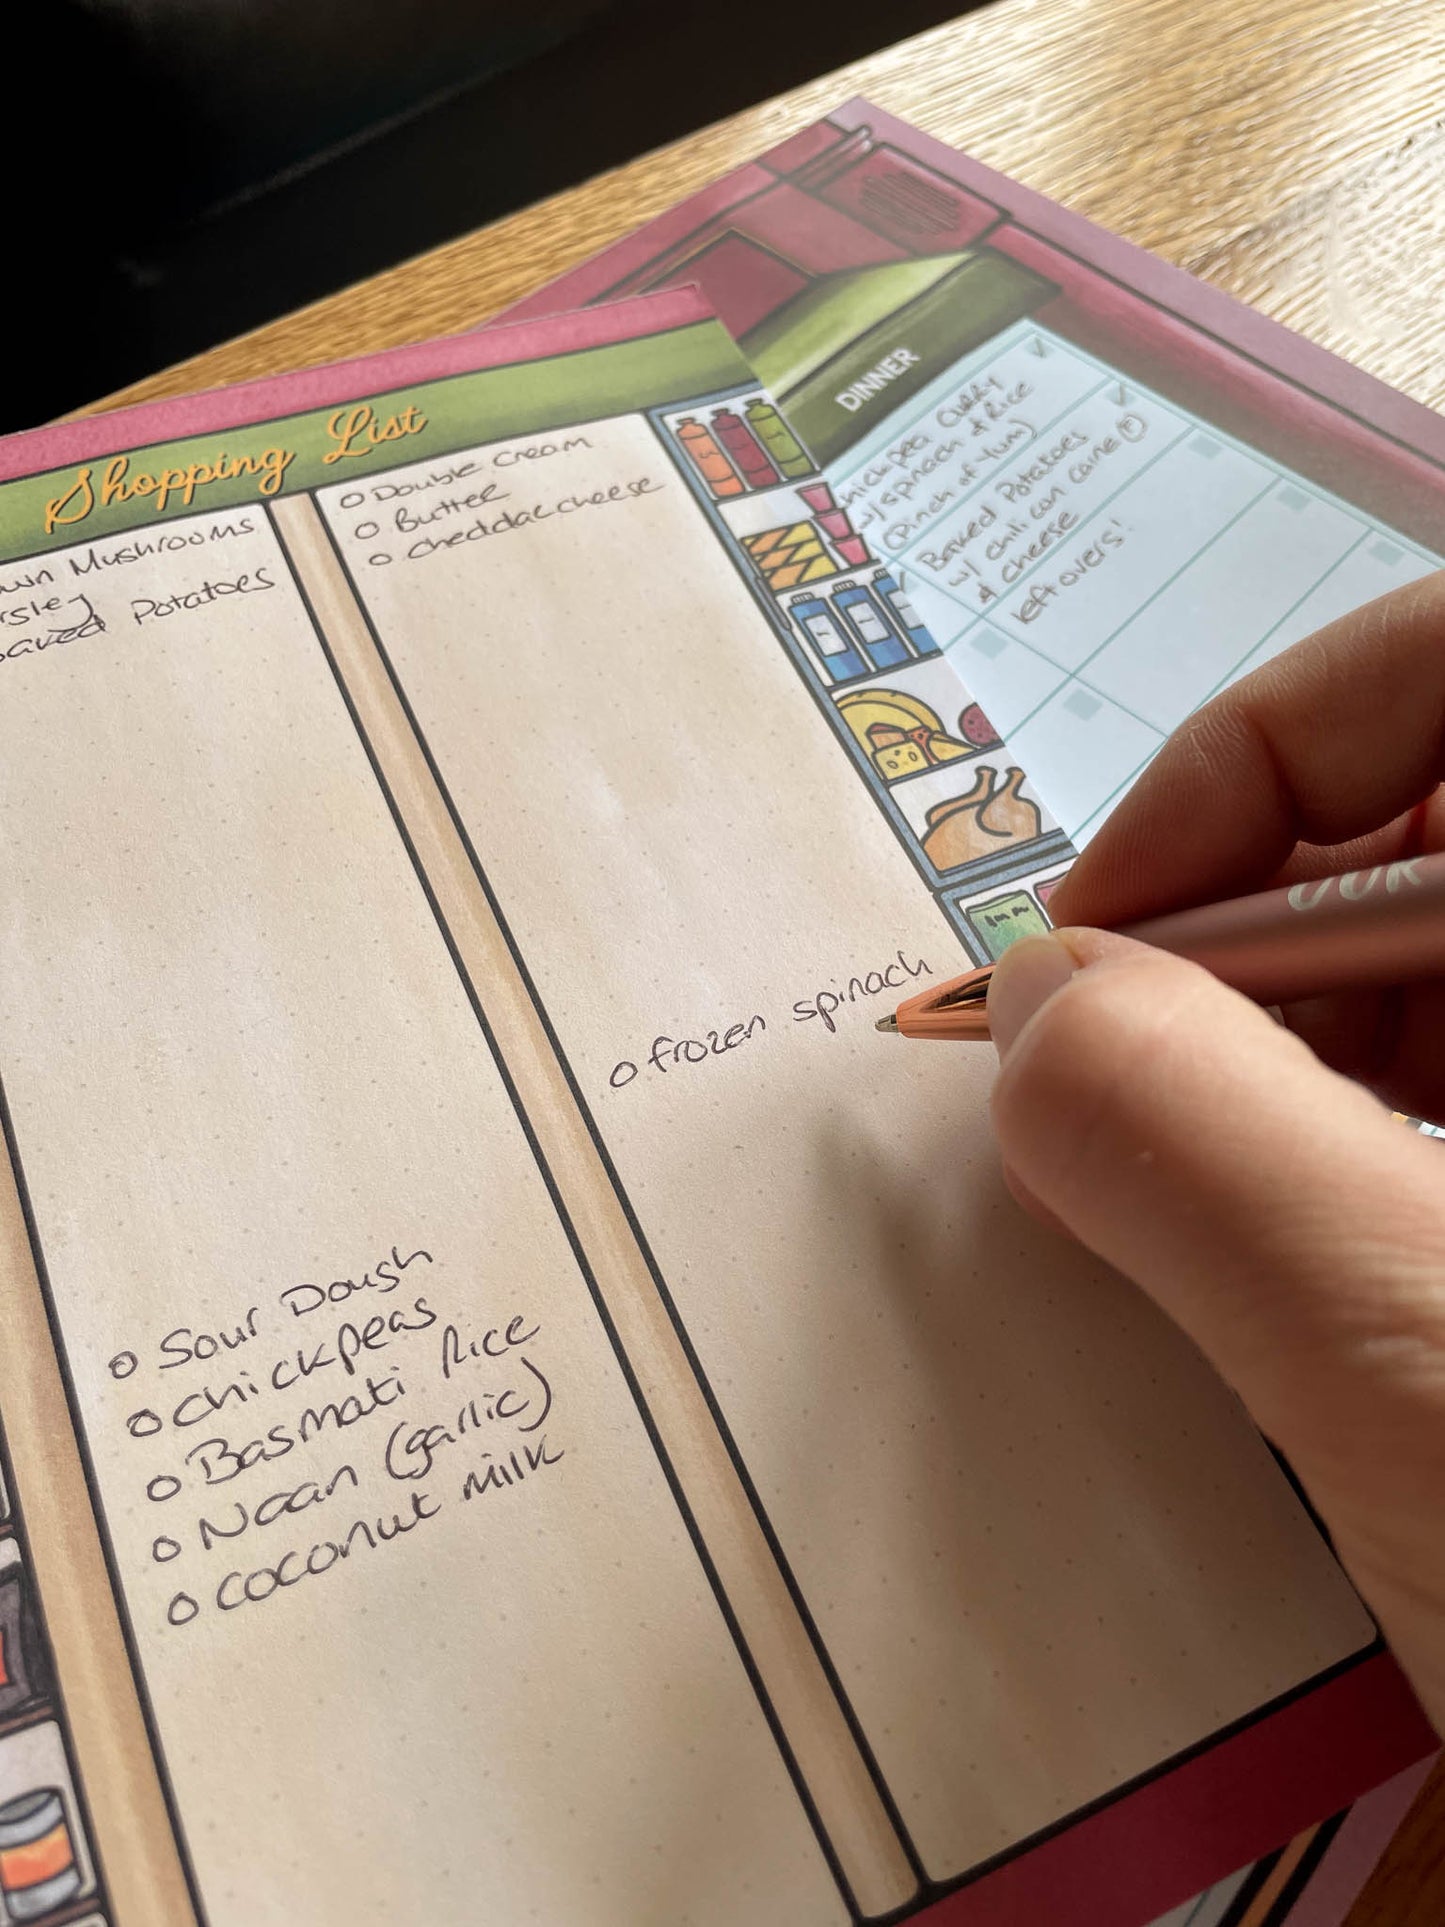 Shopping List
Mushrooms
Potatoes
Sour Dough
chickpeas
Basmati Rice
Naan (garlic)
coconut milk
Double Cream
Butter
cheddar cheese
frozen spinach
DINNER
Curry
w/ spinach & Rice
(Pinch of Yum)
Baked Potatoes
w/ chili con carne (F)
& cheese
leftovers!